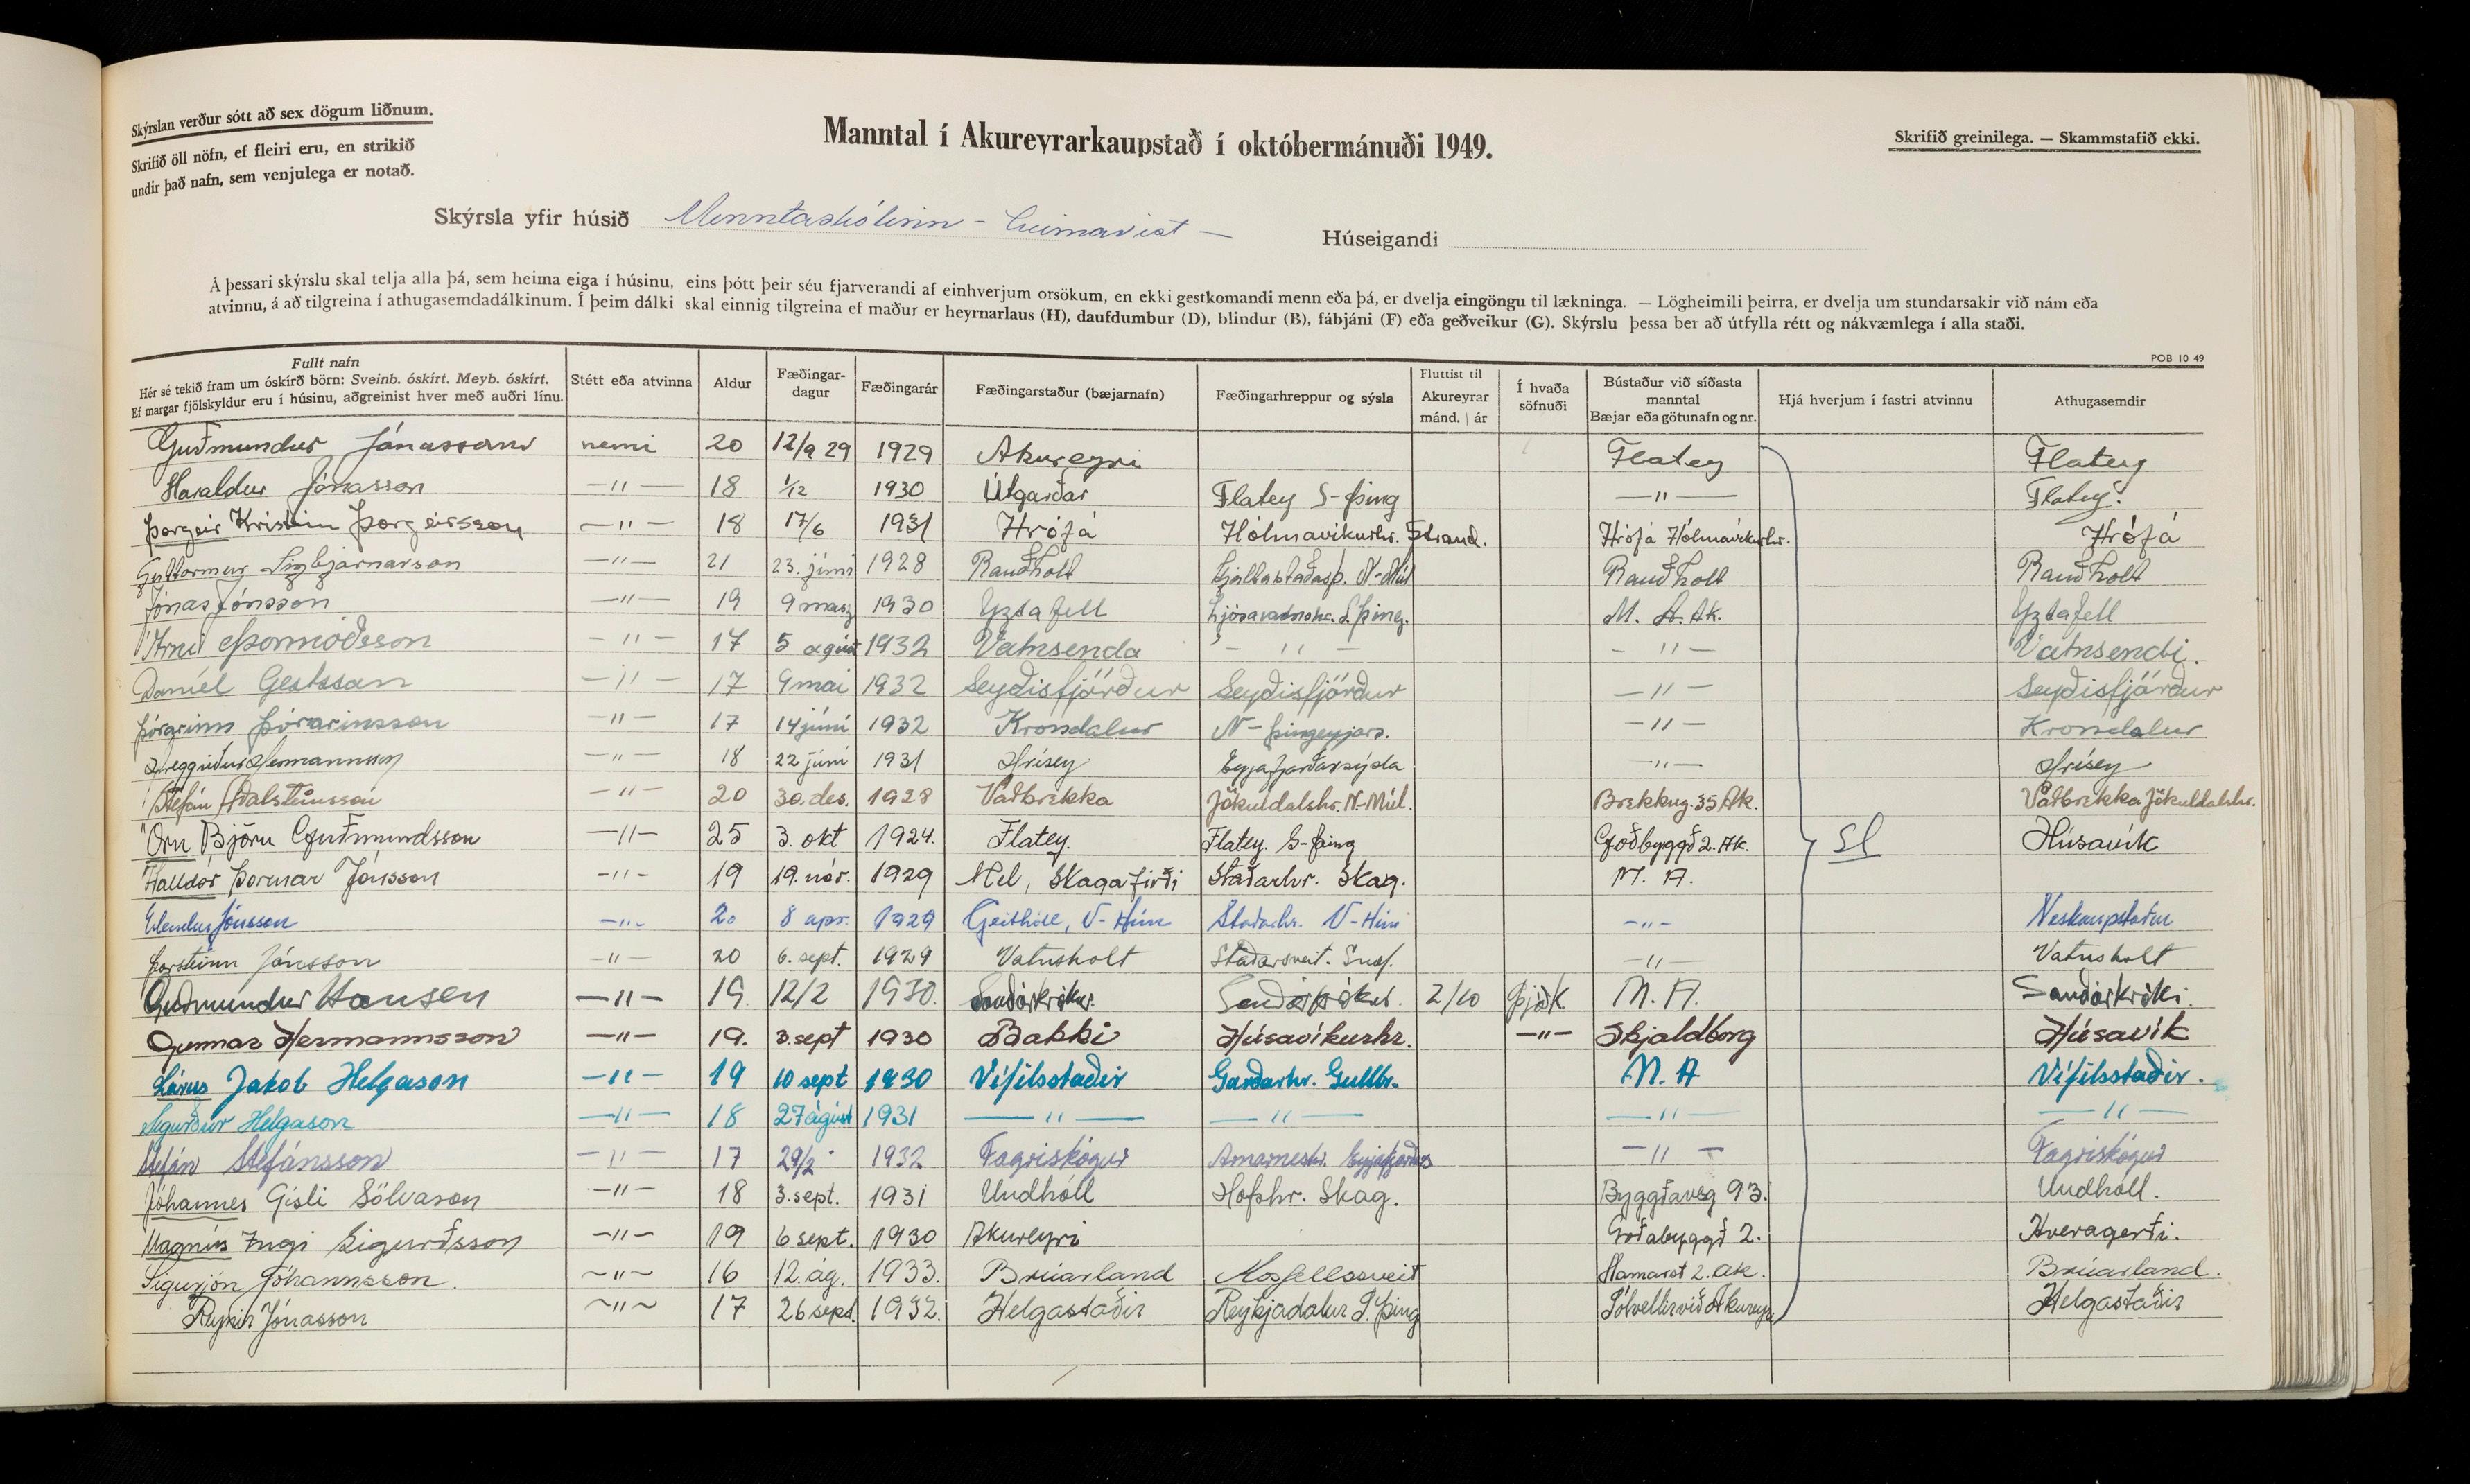 Skýrslan verður sótt að sex dögum liðnum.
Skrifið öll nöfn, ef fleiri eru, en strikið
undir það nafn, sem venjulega er notað.
Manntal í Akureyrarkaupstað í októbermánuði 1949.
Skrifið greinilega. — Skammstafið ekki.
Skýrsla yfir húsið Menntaskólinn - heimavist - Húseigandi
Á þessari skýrslu skal telja alla þá, sem heima eiga í húsinu, eins þótt þeir séu fjarverandi af einhverjum orsökum, en ekki gestkomandi menn eða þá, er dvelja eingöngu til lækninga. — Lögheimili þeirra, er dvelja um stundarsakir við nám eða
atvinnu, á að tilgreina í athugasemdadálkinum. Í þeim dálki skal einnig tilgreina ef maður er heyrnarlaus (H), daufdumbur (D), blindur (B), fábjáni (F) eða geðveikur (G). Skýrslu þessa ber að útfylla rétt og nákvæmlega í alla staði.
POB 10 49
Fullt nafn
Hér sé tekið fram um óskírð börn: Sveinb. óskírt. Meyb. óskírt.
Ef margar fjölskyldur eru í húsinu, aðgreinist hver með auðri línu.
Stétt eða atvinna
Aldur
Fæðingar-
dagur
Fæðingarár
Fæðingarstaður (bæjarnafn)
Fæðingarhreppur og sýsla
Fluttist til
Akureyrar
mánd. | ár
Í hvaða
söfnuði
Bústaður við síðasta
manntal
Bæjar eða götunafn og nr.
Hjá hverjum í fastri atvinnu
Athugasemdir
Guðmundur Jónasson nemi 20 12/9 29 1929 Akureyri Flatey Flatey
Haraldur Jónasson —"— 18 1/12 1930 Útgarðar Flatey S-Þing —"— Flatey.
Þorgeir Kristinn Þorgeirsson —"— 18 17/6 1931 Hrófá Hólmavíkurhr. Strand. Hrófá Hólmavíkurhr. Hrófá
Guttormur Sigbjarnarson —"— 21 23. júní 1928 Rauðholt Hjaltastaðaþ. N-Múl Rauðholt Rauðholt
Jónas Jónsson —"— 19 9 marz 1930 Yztafell Ljósavatnshr. S. Þing. M. A. Ak. Yztafell
Árni Þormóðsson —"— 17 5 águst 1932 Vatnsenda —"— —"— Vatnsendi.
Daníel Gestsson —"— 17 9 mai 1932 Seyðisfjörður Seyðisfjörður —"— Seyðisfjörður
Þórarinn Þórarinsson —"— 17 14 júní 1932 Krossdalur N-Þingeyjars. —"— Krossdalur
Hreggviður Hermannsson " 18 22 júní 1931 Hrísey Eyjafjarðarsýsla —"— Hrísey
Stefán Aðalsteinsson —"— 20 30. des. 1928 Vaðbrekka Jökuldalshr. N-Múl. Brekkug. 35 Ak. Vaðbrekka Jökuldalshr.
Örn Björn Guðmundsson —"— 25 3. okt 1924. Flatey. Flatey. S-Þing Goðbyggð 2. Ak. Sl Húsavík
Halldór Þormar Jónsson —"— 19 19. nóv. 1929 Mel, Skagafirði Staðarhr. Skag. M. A.
Erlendur Jónsson —"— 20 8 apr. 1929 V-Hún Staðarhr. V-Hún —"— Neskaupstaður
Þorsteinn Jónsson —"— 20 6. sept. 1929 Vatnsholt Staðarsveit. Snæf. —"— Vatnsholt
Guðmundur Hansen —"— 19. 12/2 1930. Sauðárkrókur. Sauðárkrókur. 2/10 Þjóðk. M. A. Sauðárkróki.
Gunnar Hermannsson —"— 19. 3. sept 1930 Bakki Húsavíkurhr. —"— Skjaldborg Húsavík
Lárus Jakob Helgason —"— 19 10 sept 1930 Vífilsstaðir Garðarhr. Gullbr. M. A Vífilsstaðir.
Sigurður Helgason —"— 18 27 ágúst 1931 —"— —"— —"— —"—
Stefán Stefánsson —"— 17 29/2 1932 Fagriskógur Arnarneshr. Eyjafjarðars —"— Fagriskógur
Jóhannes Gísli Sölvason —"— 18 3. sept. 1931 Undhóll Hofshr. Skag. Byggðaveg 93. Undhóll.
Magnús Ingi Sigurðsson —"— 19 6 sept. 1930 Akureyri Goðabyggð 2. Hveragerði.
Sigurjón Jóhannsson. ~"~ 16 12. ág. 1933. Brúarland Mosfellssveit Hamarst 2. Ak. Brúarland.
Reykir Jónasson ~"~ 17 26 sept. 1932. Helgastaðir Reykjadalur S. Þing Sólvellir við Akureyri Helgastaðir